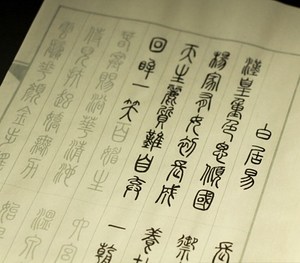 白居易
漢皇重色思傾國 御
楊家有女初長成 養
天生麗質難自棄 一朝
回眸一笑百媚生 六宮
春寒賜浴華清池 溫泉
侍兒扶起嬌無力 始是
雲鬢花顏金步搖